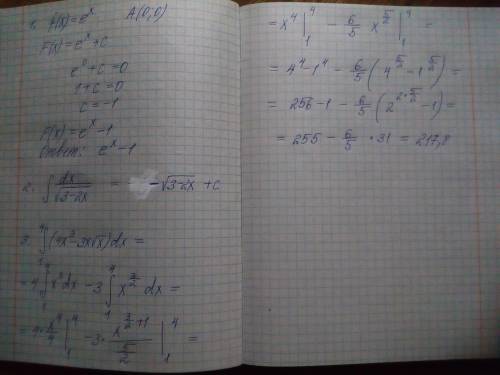 1. f(x)=eˣ A(0;0)
F(x)=eˣ+c
e⁰+c=0
1+c=0
c=-1
F(x)=eˣ-1
Ответ: eˣ-1
2. ∫ dx/√(3-2x) = -√(3-2x) +C
3. ∫₁⁴ (4x³-3x√x)dx =
=4∫₁⁴ x³dx -3∫₁⁴ x^(3/2) dx =
=4·x⁴/4 |₁⁴ -3· x^(3/2+1)/(5/2) |₁⁴ =
=x⁴ |₁⁴ - 6/5 x^(5/2) |₁⁴ =
=4⁴-1⁴- 6/5 (4^(5/2)-1^(5/2))=
=256-1- 6/5 (2^(2·5/2)-1)=
=255- 6/5 *31 = 217,8